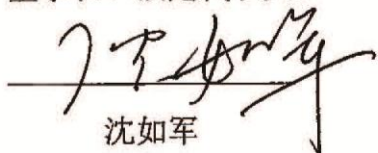 沈如军
沈如军